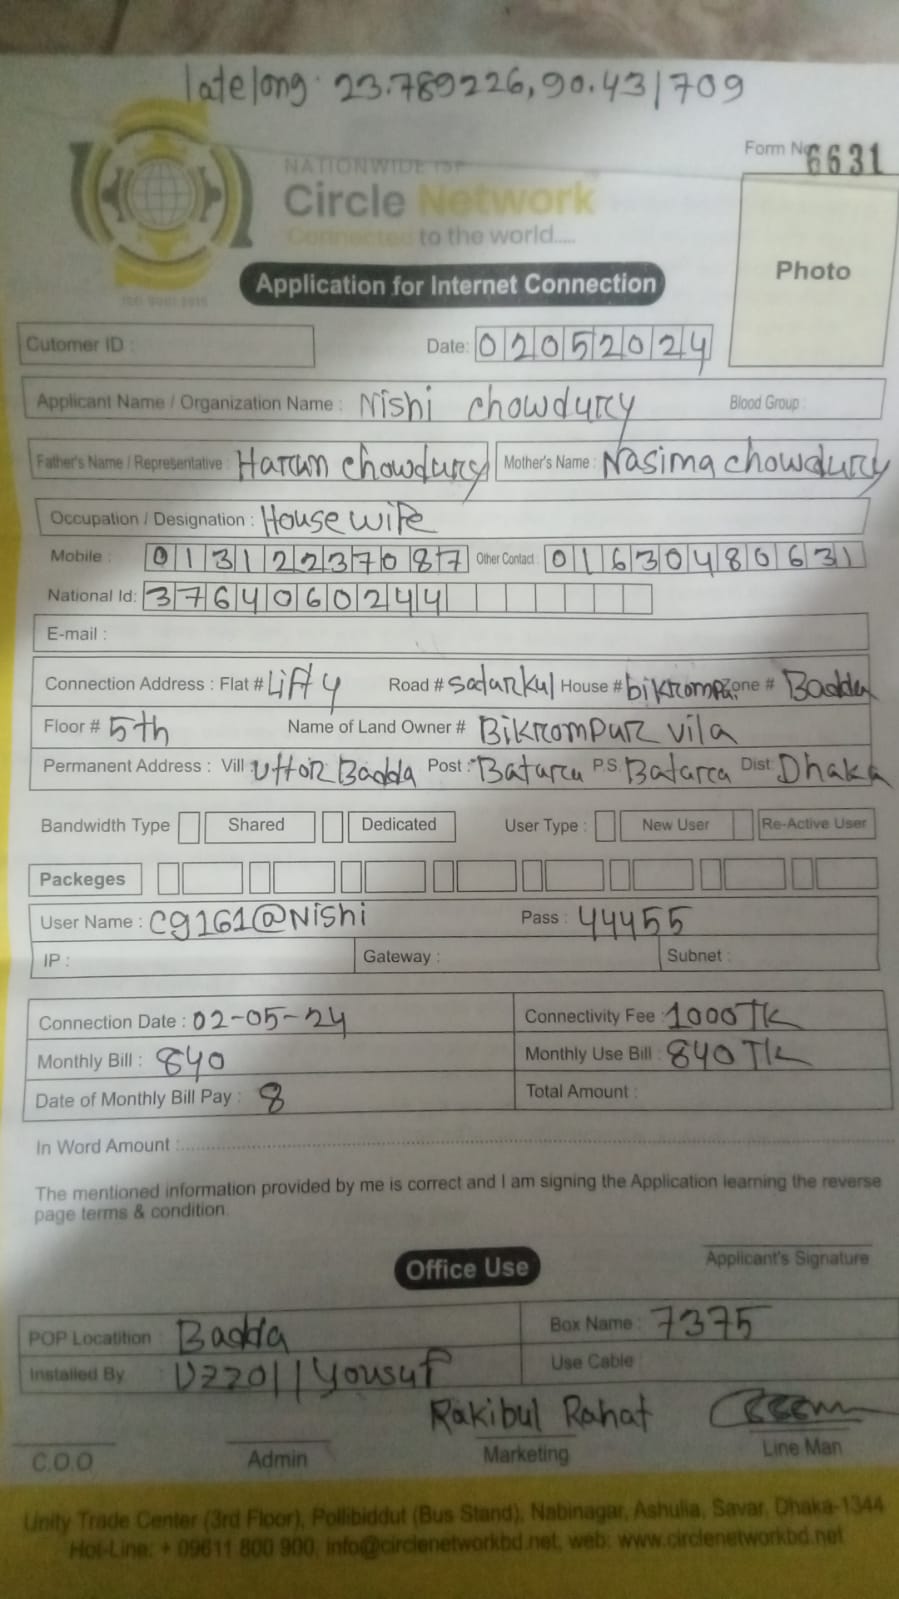 late long: 23.789226, 90.431709
Form No 6631
NATIONWIDE ISP
Circle Network
Connected to the world.....
Photo
Application for Internet Connection
Cutomer ID : Date: 02052024
Applicant Name / Organization Name : Nishi chowdury Blood Group :
Father's Name / Representative : Harun chowdury Mother's Name : Nasima chowdury
Occupation / Designation : House wife
Mobile : 01312237087 Other Contact : 01630480631
National Id: 3764060244
E-mail :
Connection Address : Flat # Lift 4 Road # satarkul House # bikrompu. Zone # Badda
Floor # 5th Name of Land Owner # Bikrompur vila
Permanent Address : Vill Uttor Badda Post : Batara P.S. Batara Dist: Dhaka
Bandwidth Type Shared Dedicated User Type : New User Re-Active User
Packeges
User Name : cg161@Nishi Pass : 44455
IP : Gateway : Subnet :
Connection Date : 02-05-24 Connectivity Fee : 1000 Tk
Monthly Bill : 840 Monthly Use Bill : 840 Tk
Date of Monthly Bill Pay : 8 Total Amount :
In Word Amount :
The mentioned information provided by me is correct and I am signing the Application learning the reverse
page terms & condition.
Applicant's Signature
Office Use
POP Locatition : Badda Box Name : 7375
Installed By : Uzzol // Yousuf Use Cable :
Rakibul Rahat
C.O.O Admin Marketing Line Man
Unity Trade Center (3rd Floor), Pollibiddut (Bus Stand), Nabinagar, Ashulia, Savar, Dhaka-1344
Hot-Line: + 09611 800 900, info@circlenetworkbd.net, web: www.circlenetworkbd.net